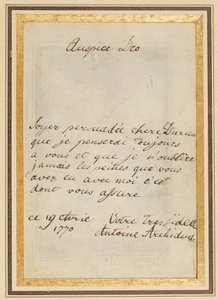 Auspice Deo
soyez persuadée chere
que je penserai toujours
a vous et que je n'oublirai
jamais les peines que vous
avez eu avec moi c'est
dont vous assure
ce 19 avril Votre Tres fidelle
1770 Antoine Archiduchesse